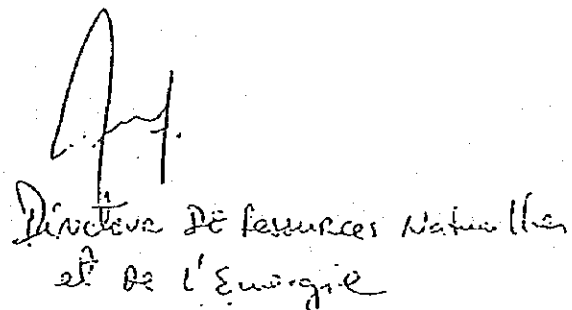 Directeur DE Ressources Naturelles
et De l'Energie